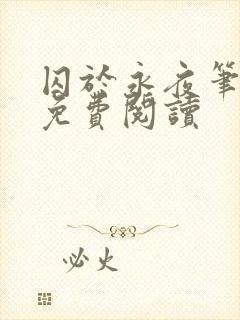 囚於永夜筆
免費閱讀
必火